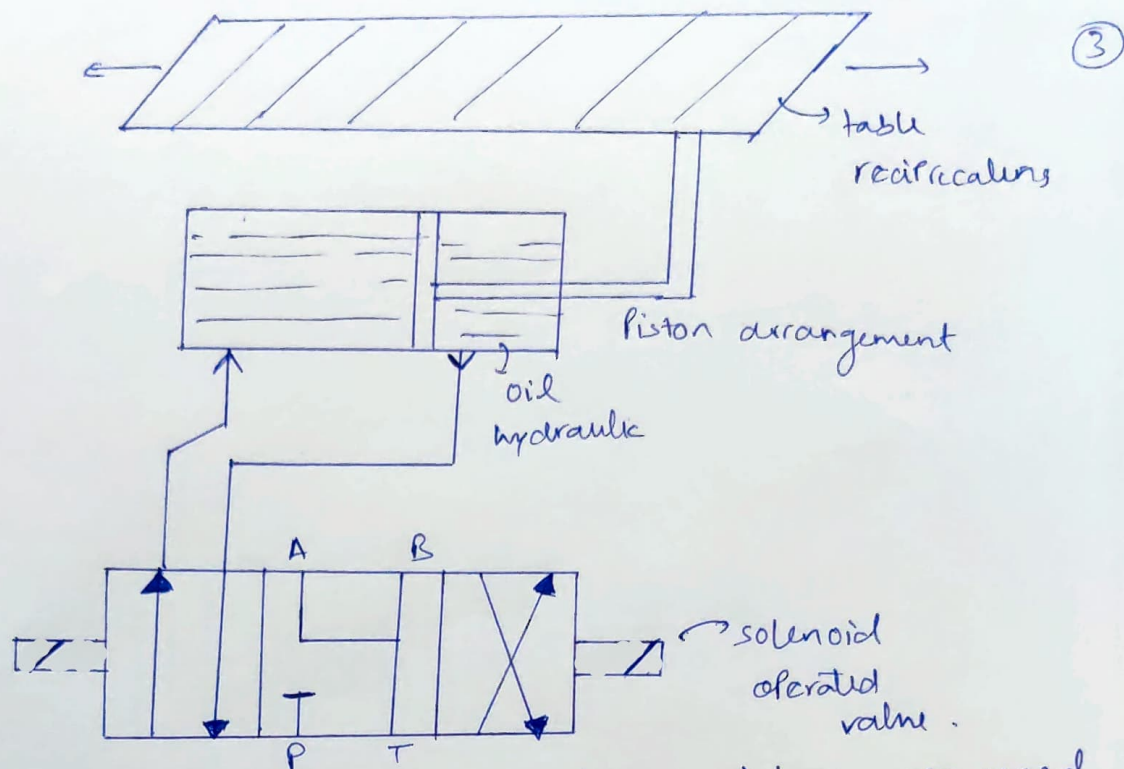 3
table
reciprocating
Piston arrangement
oil
hydraulic
A B
solenoid
operated
valve.
P T